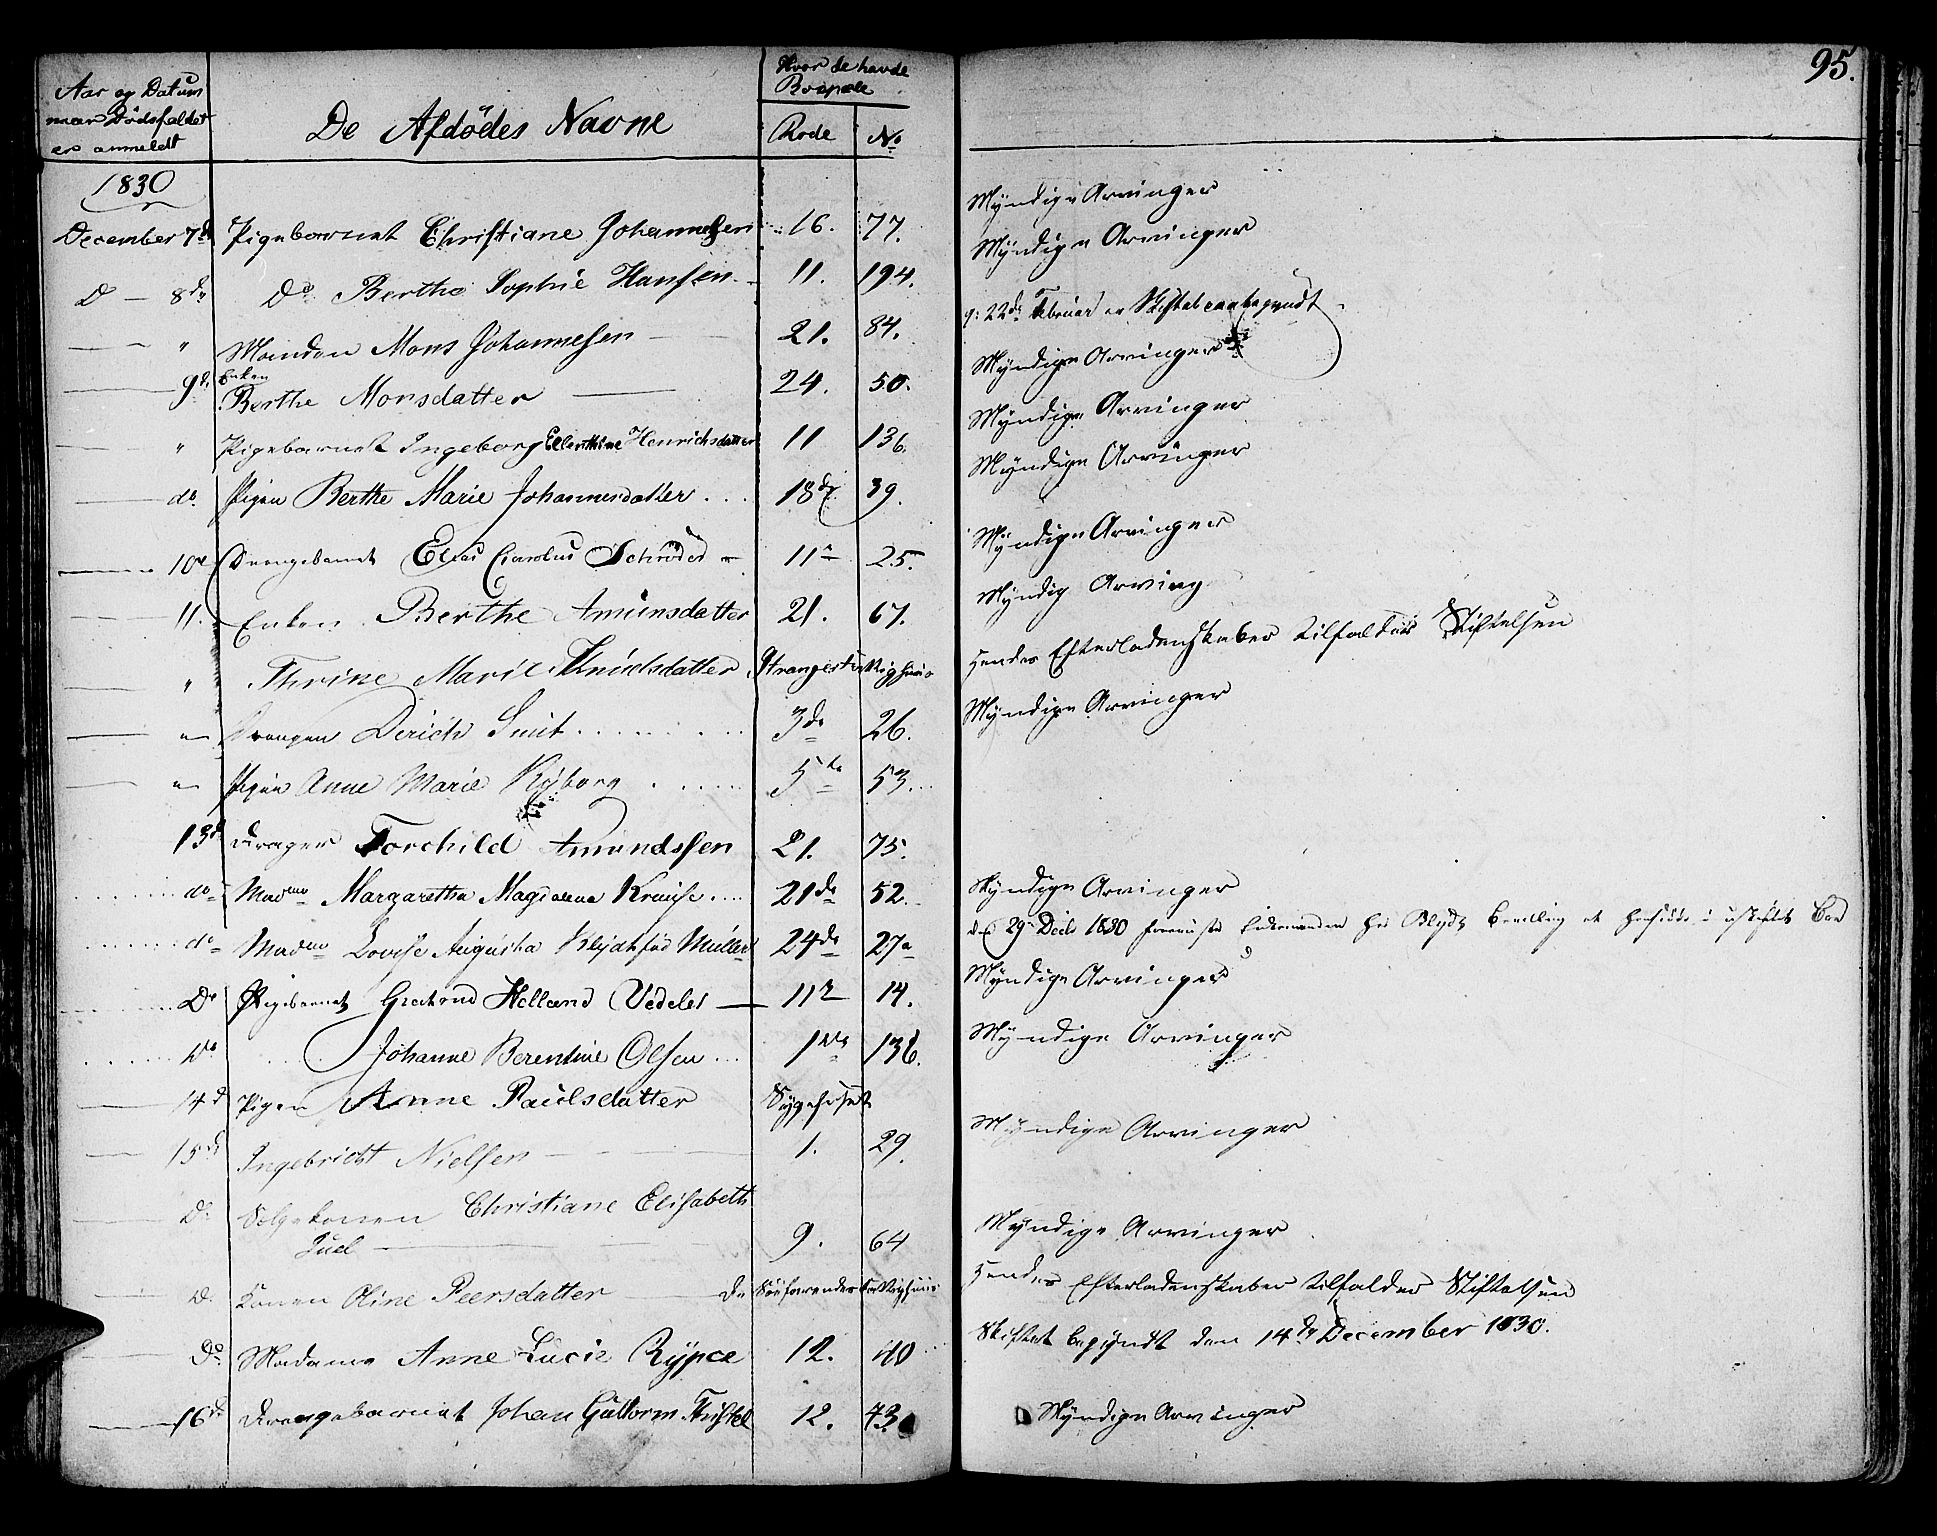 95.
Aar og Datum
naar Dödsfaldet
er anmeldt
De Afdödes Navne
Hvor de havde
Bopæle
Rode No
1830
December 7de Pigebarnet Christiane Johannesen 16. 77. Myndige Arvinger
D 8de Do Berthe Sophie Hansen 11. 194. Myndige Arvinger
" Manden Mons Johannesen 21. 84. 22de Februar er Skiftet begyndt
9de Enken
Berthe Monsdatter 24. 50. Myndige Arvinger
" Pigebarnet Ingeborg Ellerthine Henrichsdatter 11 136. Myndige Arvinger
do. Pigen Berthe Marie Johannesdatter 18de 39. Myndige Arvinger
10de Drengebarnet Elias Carolus Schrøder 11 25. Myndige Arvinger
11. Enken Berthe Amunsdatter 21. 67. Myndig Arving
" Thrine Marie Knudsdatter Strangestiftelsen Hendes Efterladenskaber tilfalder Stiftelsen
" Drengen Derich Smit 3de 26. Myndige Arvinger
" Pigen Anne Marie Kyborg 5te 53.
13de Drager Torchild Amundssen 21. 75.
do Madme Margaretha Magdalena Krause 21de 52. Myndige Arvinger
do Madme Lovise Augusta Klydt fød Müller 24de 27a d. 29 Decbr 1830 foreviiste Enkemanden Bevilling at hensidde i uskiftet Boe
Do Pigebarnet Giertrud Helland Vedeler 11te 14. Myndige Arvinger
Do Johanne Berentine Olsen 1ste 136. Myndige Arvinger
14d Pigen Anne Paulsdatter Sygehuset
15de Ingebricht Nielsen 1. 29. Myndige Arvinger
Do Sælgekonen Christiane Elisabeth
Juel 9. 64 Myndige Arvinger
D. Konen Oline Peersdatter De Söefarendes Fattighuus Hendes Efterladenskaber tilfalder Stiftelsen
Do Madame Anne Lucie Rÿpce 12. 40 Skiftet begyndt den 14de December 1830.
16de Drengebarnet Johan Guttorm 12. 43. Myndige Arvinger